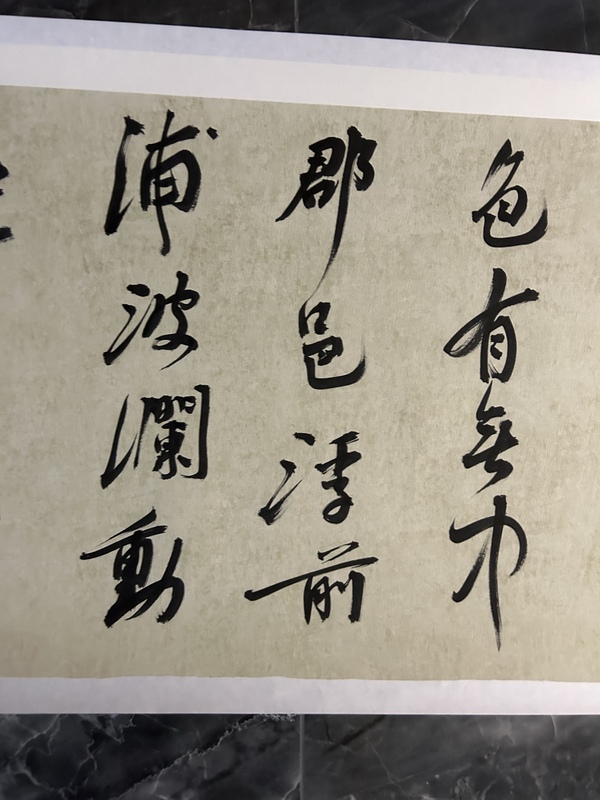 色有無中
郡邑浮前
浦波瀾動